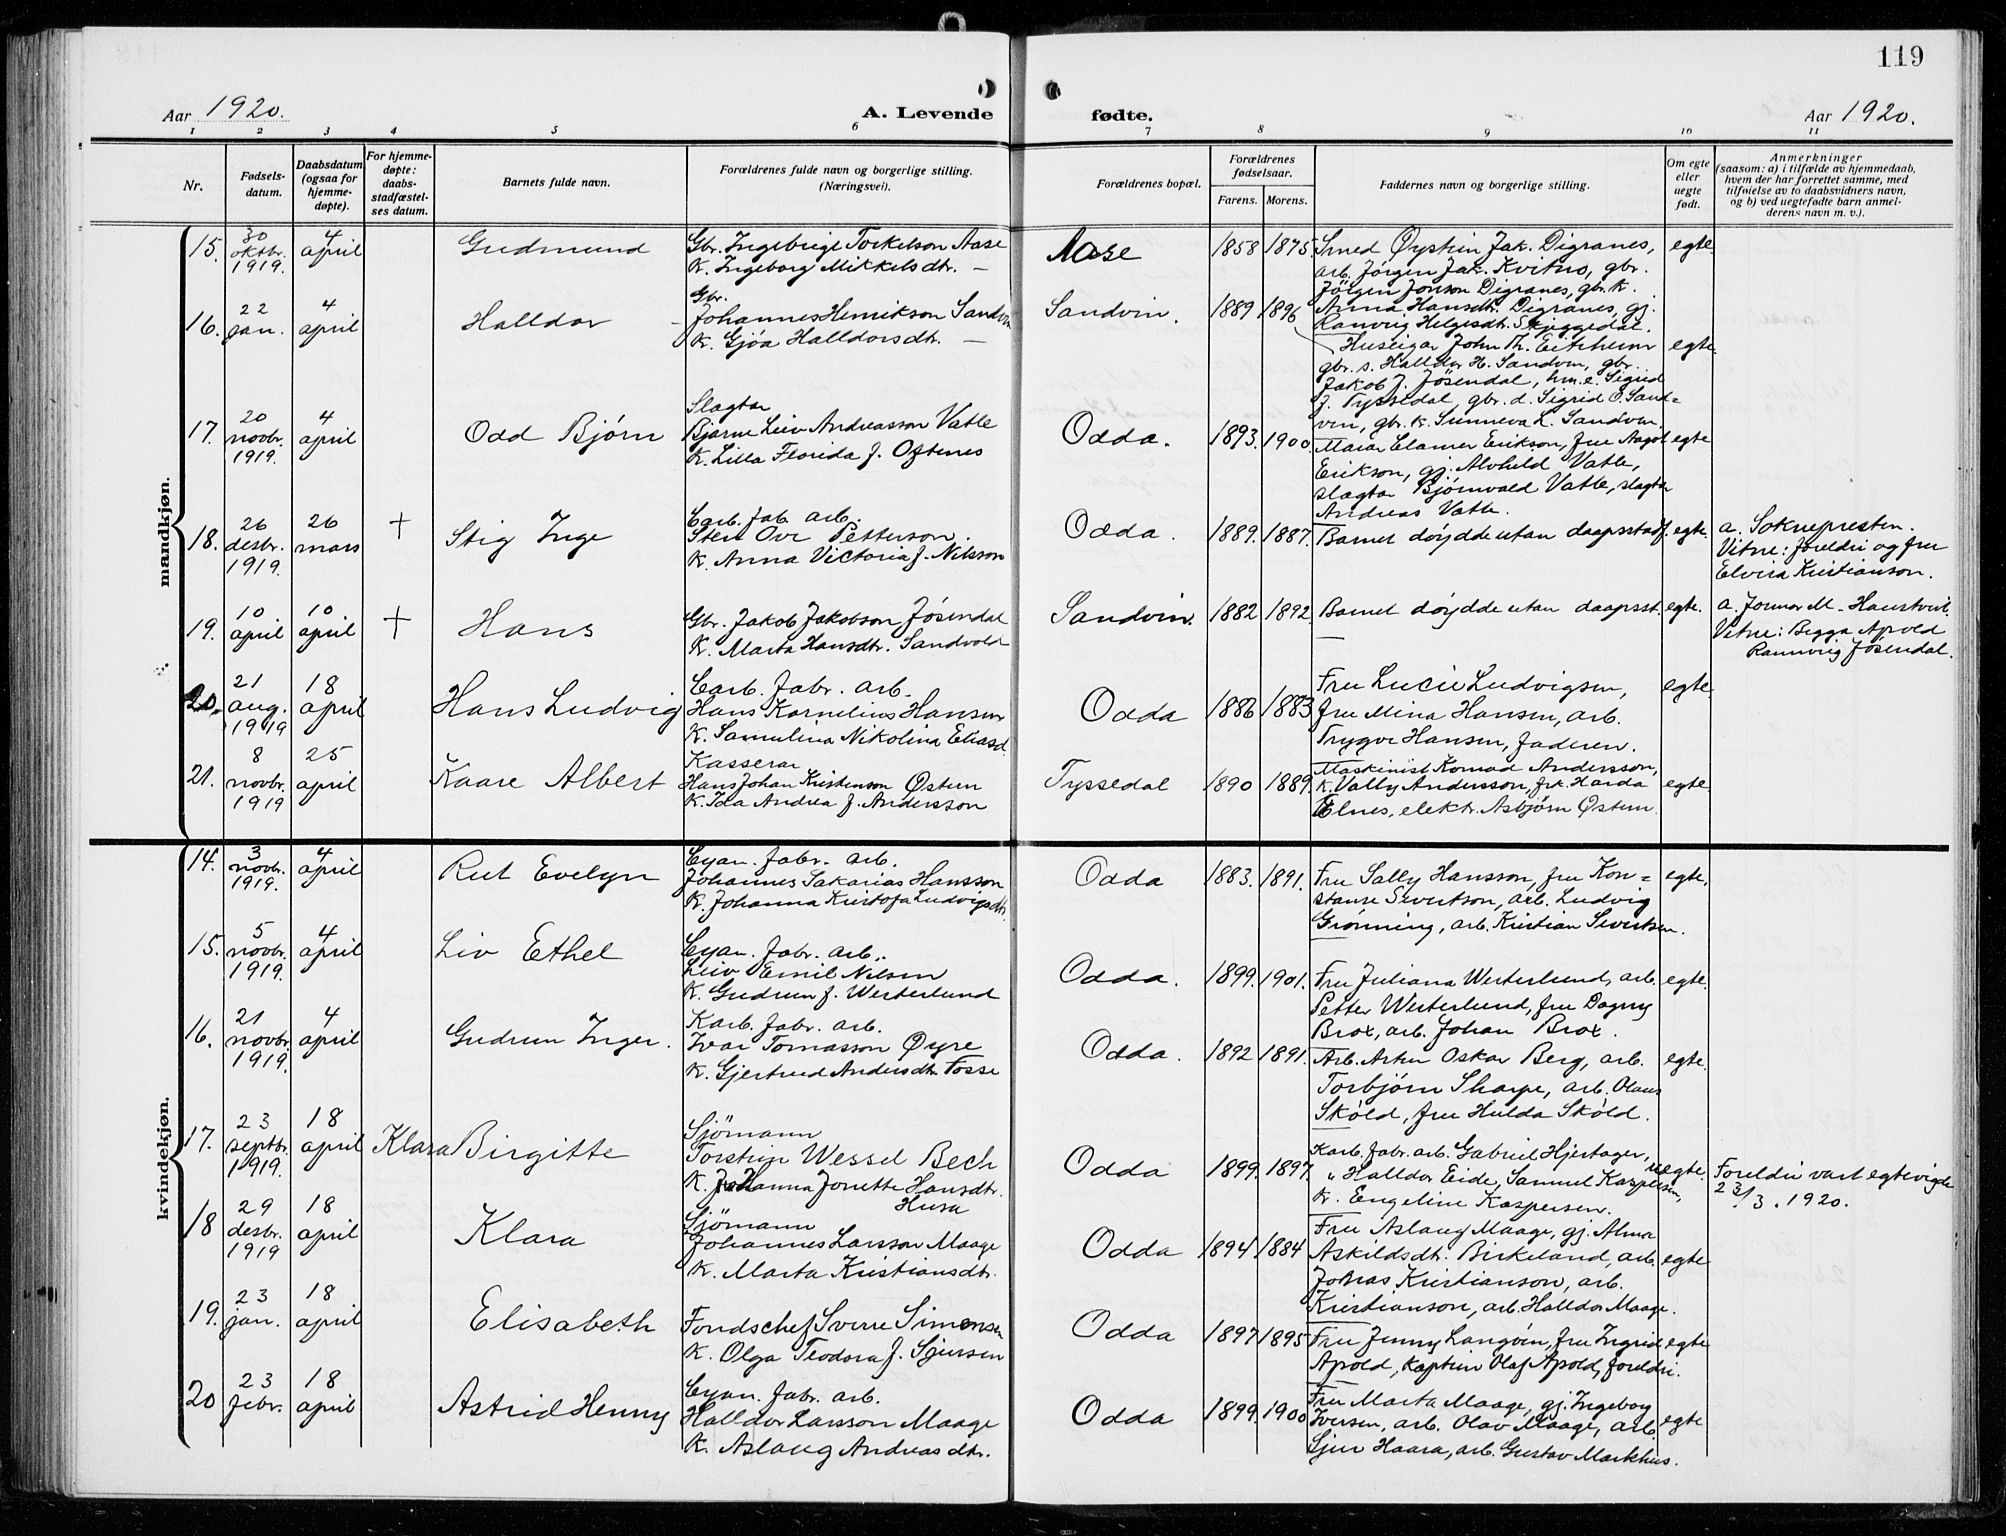 119
Aar 1920.
A. Levende
fødte.
Aar 1920.
1 2 3 4 5 6 7 8 9 10 11
Nr.
Fødsels-
datum.
Daabsdatum
(ogsaa for
hjemme-
døpte).
For hjemme-
døpte:
daabs-
stadfæstel-
ses datum.
Barnets fulde navn.
Forældrenes fulde navn og borgerlige stilling.
(Næringsvei).
Forældrenes bopæl.
Forældrenes
fødselsaar.
Farens. Morens.
Faddernes navn og borgerlige stilling.
Om egte
eller
uegte
født.
Anmerkninger
(saasom: a) i tilfælde av hjemmedaab,
hvem der har forrettet samme, med
tilføielse av to daabsvidners navn,
og b) ved uegtefødte barn anmel-
derens navn m. v.).
mandkjøn.
15.
30
oktbr.
1919.
4
april
Gudmund
Gbr. Ingebrigt Torkelson Aase
K. Ingeborg Mikkelsdtr. —
Aase
1858
1875.
Smed Øystein Jak. Digranes,
arb. Jørgen Jak. Kvitno, gbr.
Jørgen Jonson Digranes, gbr. k.
Anna Hansdtr. Digranes, gj.
Ranveig Helgesdt. Skjeggedal.
egte.
16.
22
jan.
4
april
Halldor
Gbr.
Johannes Henrikson Sandvin
K. Gjøa Halldorsdtr. —
Sandvin.
1889
1896
Huseigar John Th. Eitrheim
gbr. s. Halldor H. Sandvin, gbr.
Jakob J. Jøsendal, hm. e. Sigrid
J. Tyssedal, gbr. d. Sigrid O. Sand=
vin, gbr. k. Sunneva L. Sandvin.
egte.
17.
20
novbr.
1919.
4
april
Odd Bjørn
Slagtar
Bjarne Leiv Andreasson Vatle
K. Lilla Florida f. Oftenes
Odda.
1893.
1900
Marar Clamer Erikson, frue Aagot
Erikson, gj. Alvhild Vatle,
slagtar Bjørnvald Vatle, slagtar
Andreas Vatle.
egte
18.
26
desbr.
1919.
26
mars
+
Stig Inge
Carb. fab. arb.
Sten Ove Petterson.
K. Anna Victoria f. Nilsson
Odda.
1889.
1887.
Barnet døydde utan daapsstadf.
egte.
a. Soknepresten.
Vitne: foreldri og fru
Elvira Kristianson.
19.
10
april
10
april
+
Hans
Gbr. Jakob Jakobson Jøsendal
K. Marta Hansdtr. Sandvold
Sandvin.
1882
1892
Barnet døydde utan daapsst.
egte.
a. Jormor M. Haustveit.
Vitne: Begga Apold
Rannveig Jøsendal.
20.
21
aug.
1919
18
april
Hans Ludvig
Carb. fabr. arb.
Hans Kornelius Hansen
K. Samulina Nikolina Eliasd.
Odda
1886
1883
Fru Lucie Ludvigsen,
fru Mina Hansen, arb.
Trygve Hansen, faderen.
egte
21.
8
novbr.
1919
25
april
Kaare Albert
Kasserar
Hans Johan Kristenson Østern
K. Ida Andrea f. Andersson
Tyssedal
1890
1889.
Maskinist Konrad Andersson,
k. Vally Andersson, frk. Harda
Elnes, elektr. Asbjørn Østern.
egte
kvindekjøn.
14.
3
novbr.
1919.
4
april
Rut Evelyn
Cyan. fabr. arb.
Johannes Sakarias Hansson
K. Johanna Kristofa Ludvigsdtr.
Odda
1883.
1891.
Fru Sally Hansson, fru Kon=
stanse Sivertson, arb. Ludvig
Grønning, arb. Kristian Sivertsen.
egte.
15.
5
novbr.
1919.
4
april
Liv Ethel
Cyan. fabr. arb..
Leiv Emil Nilsen
K. Gudrun f. Westerlund
Odda.
1899.
1901.
Fru Juliana Westerlund, arb.
Petter Westerlund, fru Dagny
Brox, arb. Johan Brox.
egte.
16.
21
novbr.
1919.
4
april
Gudrun Inger.
Karb. fabr. arb.
Ivar Tomasson Øyre
K. Gjertrud Andersdtr. Fosse
Odda.
1892
1891.
Arb. Artur Oskar Berg, arb.
Torbjørn Skarpe, arb. Olaus
Sköld, fru Hulda Sköld.
egte.
17.
23
septbr.
1919.
18
april
Klara Birgitte
Sjömann
Torstein Wessel Bech
K. Johanna Jonette Hansdtr.
Husa
Odda
1899.
1897.
Karb. fabr. arb. Gabriel Hjertager,
" Halldor Eide, Samuel Kaspersen,
k. Engeline Kaspersen.
uegte.
Foreldri vart egtevigde
23/3. 1920.
18
29
desbr.
1919
18
april
Klara
Sjömann
Johannes Larsson Maage
K. Marta Kristiansdtr.
Odda
1894
1884
Fru Aslaug Maage, gj. Alma
Askildsdtr. Birkeland, arb.
Johas Kristianson, arb.
Kristianson, arb. Halldor Maage.
egte
19.
23
jan.
18
april
Elisabeth
Fondschef Sverre Simonsen
K. Olga Teodora f. Sjursen
Odda
1897
1895
Fru Jenny Langøen, fru Ingrid
Apold, kaptein Olaf Apold, foreldri.
egte
20
23
febr.
18
april
Astrid Henny
Cyan. fabr. arb.
Halldor Larsson Maage
K. Aslaug Andreasdtr.
Odda
1899.
1900
Fru Marta Maage, gj. Ingeborg
Iversen, arb. Olav Maage, arb.
Sjur Haara, arb. Gustav Markhus.
egte